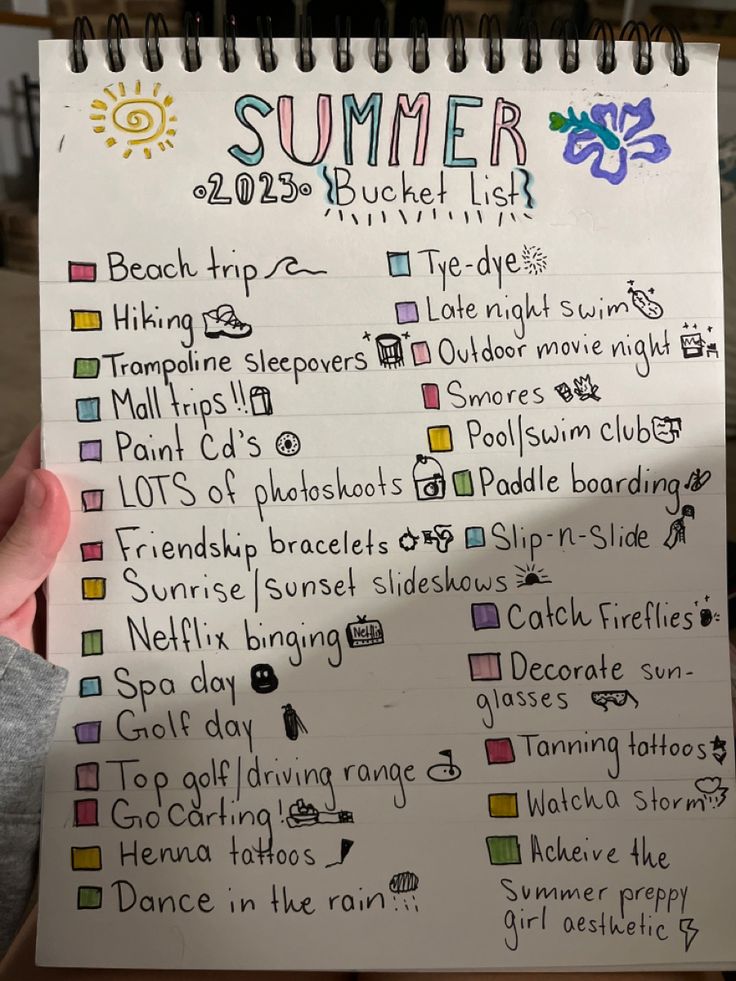 SUMMER
•2023• {Bucket List}
Beach trip
Hiking
Trampoline sleepovers
Mall trips!!
Paint Cd's
LOTS of photoshoots
Friendship bracelets
Sunrise/sunset slideshows
Netflix binging
Netflix
Spa day
Golf day
Top golf/driving range
Go Carting!
Henna tattoos
Dance in the rain
Tye-dye
Late night swim
Outdoor movie night
Smores
Pool/swim club
Paddle boarding
Slip-n-Slide
Catch Fireflies
Decorate sun-
glasses
Tanning tattoos
Watch a Storm
Acheive the
Summer preppy
girl aesthetic